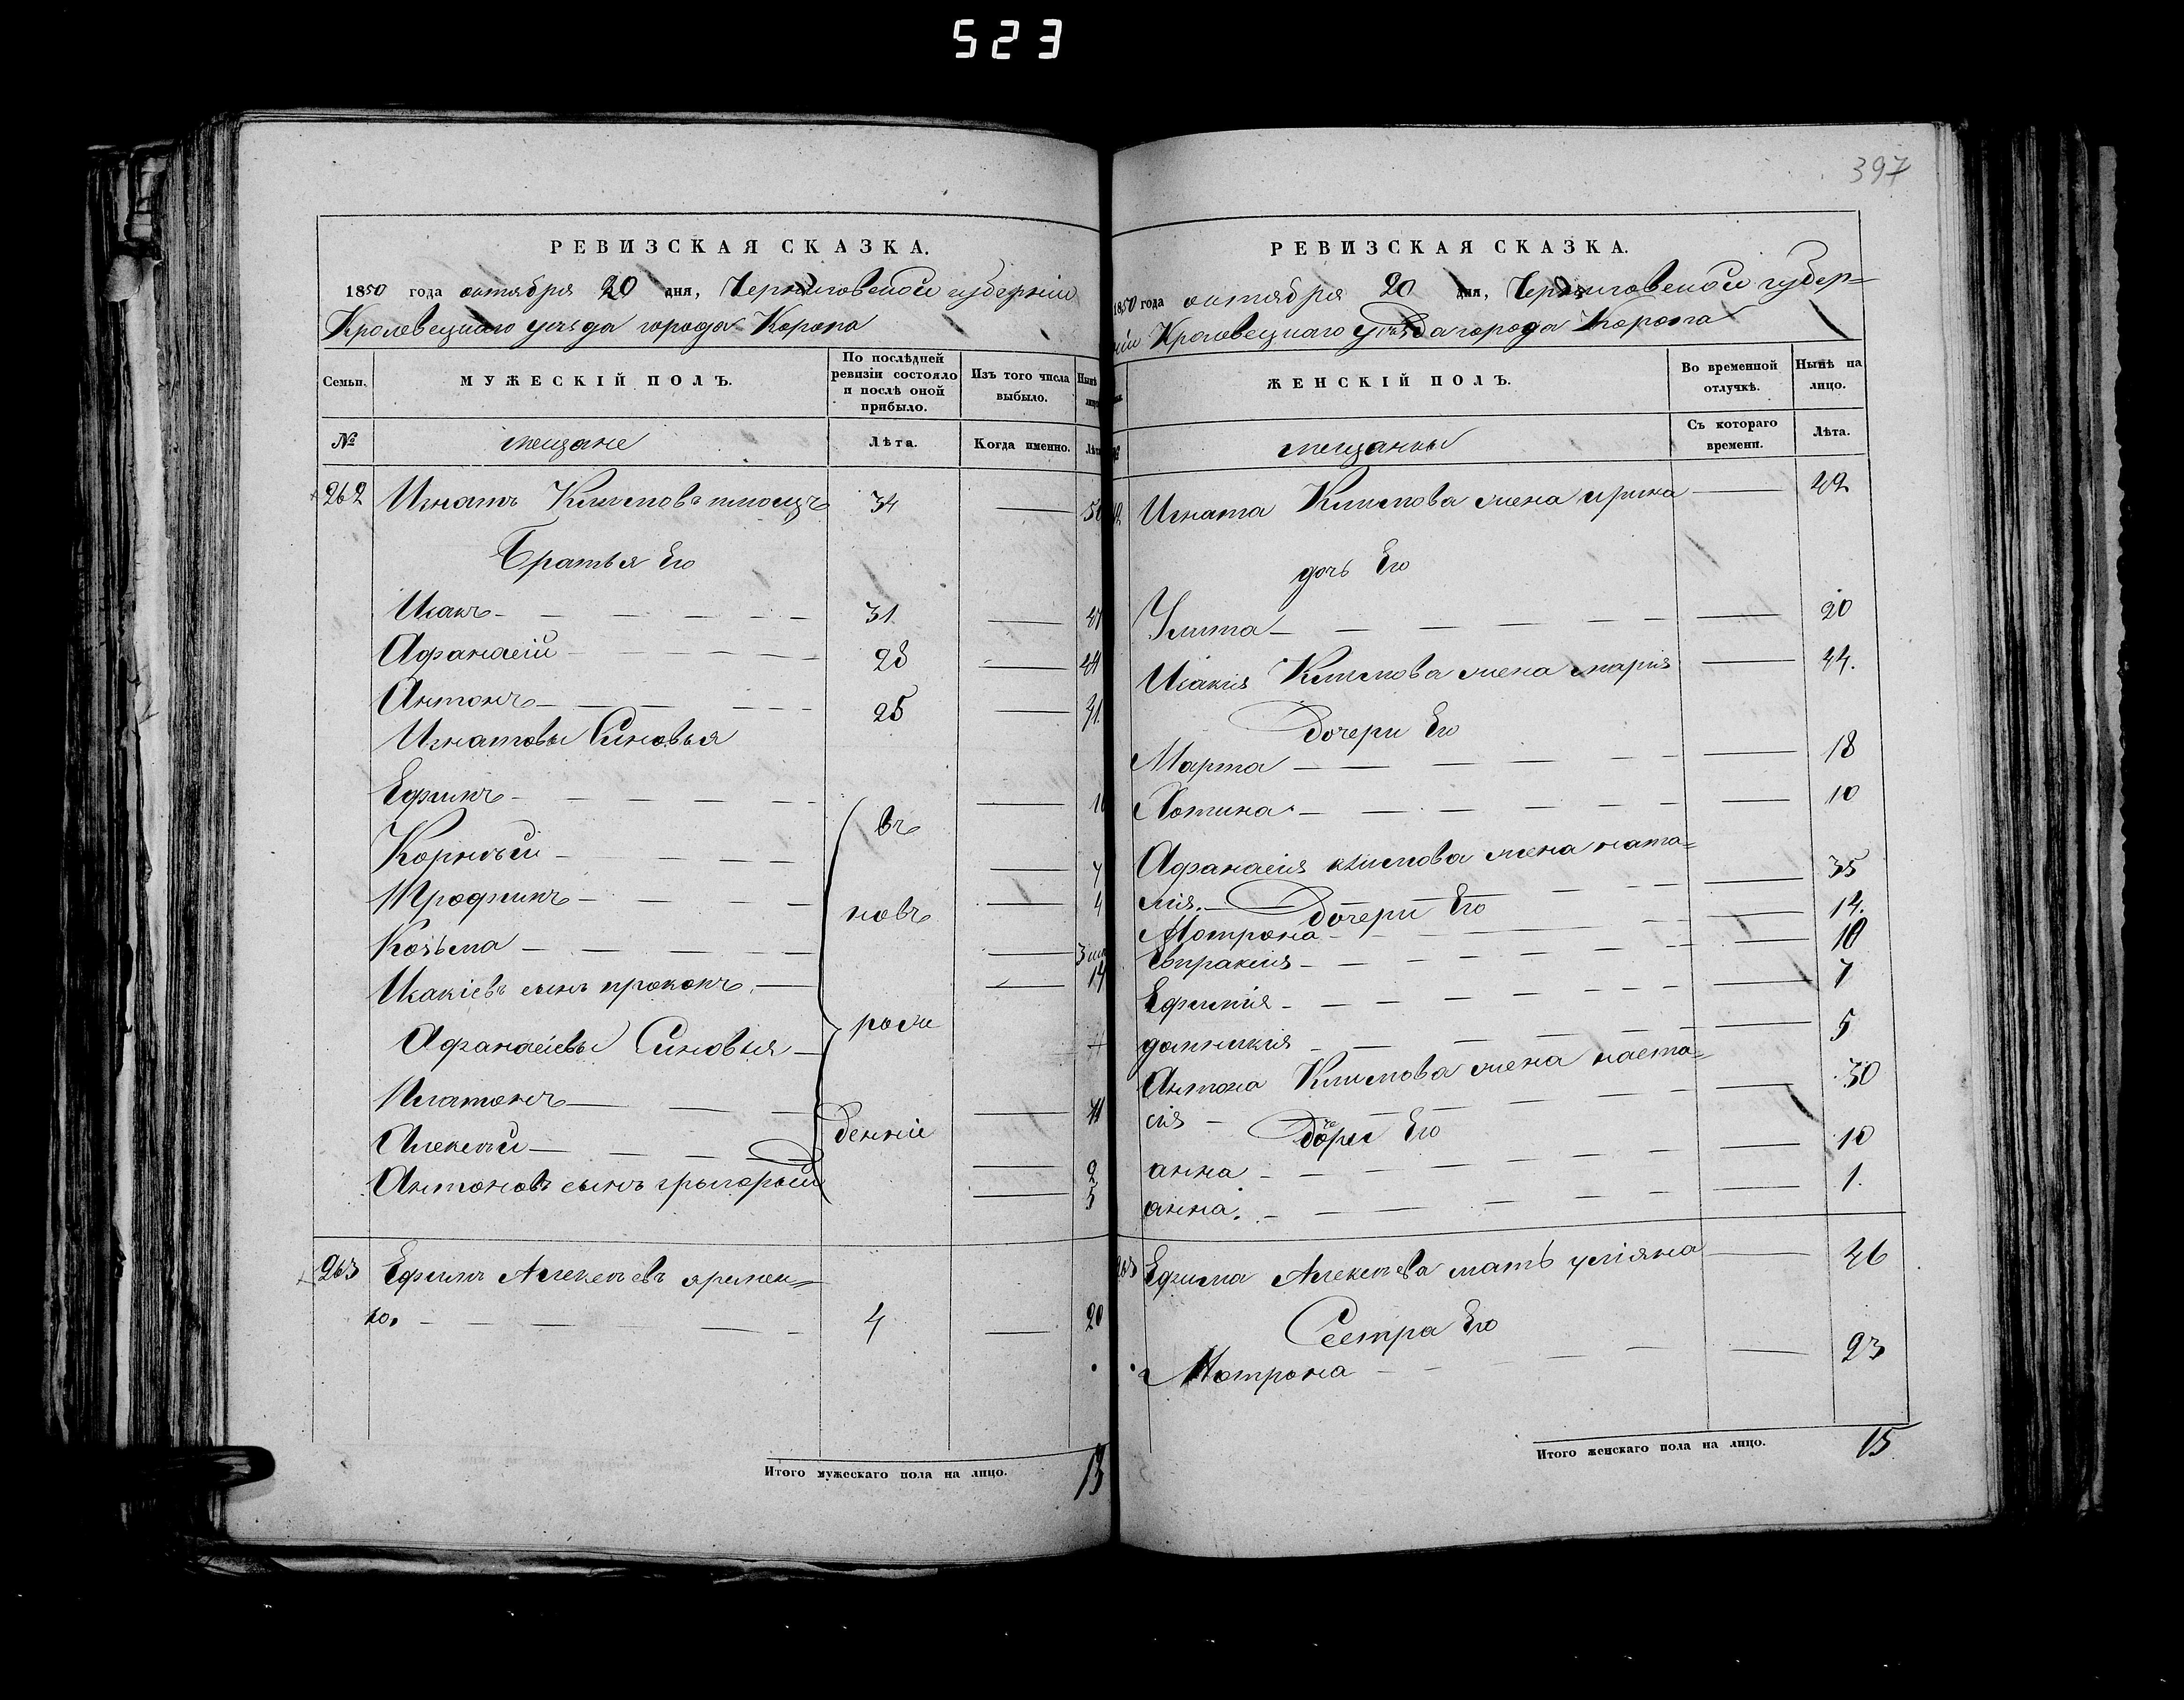 523
РЕВИЗСКАЯ СКАЗКА.
1850 года октября 20 дня, Черниговской губерніи
Кролевецкаго уѣзда города Коропа
Семьи.
МУЖЕСКІЙ ПОЛЪ.
По послѣдней ревизіи состояло и послѣ оной прибыло.
Изъ того числа выбыло.
Нынѣ
№
мещане
Лѣта.
Когда именно.
262 Игнатъ Климовъ 34 — 50
Братья Его
Исакъ — 31 — 47
Афанасій — 28 — 44
Антонъ — 25 — 41
Игнатовы Синовья
Ефимъ —
Корнѣй — 7
Трофимъ — 4
Козьма — 3
Исакіевъ сынъ прокопъ — 14
Афанасіевы Синовья —
Платонъ — 11
Алексѣй — 2
Антоновъ сынъ григорій — 5
въ
новѣ
рож
денніе
263 Ефимъ Алексѣевъ яримен=
ко. — 4 — 20
Итого мужескаго пола на лицо. 13
397
РЕВИЗСКАЯ СКАЗКА.
1850 года октября 20 дня, Черниговской губер=
ніи Кролевецкаго уѣзда города Коропа
ЖЕНСКІЙ ПОЛЪ.
Во временной отлучкѣ.
Нынѣ на лицо.
мещанки
Съ котораго времени.
Лѣта.
Игната Климова жена ирина — 49
дочь Его
Улита — 20
Исакия Климова жена мария — 44.
Дочери Его
Марта — 18
Фотина — 10
Афанасия климова жена ната=
лия. — 35
Дочери Его
Мотрона — 14.
Евпраксия — 10
Ефимия — 7
домникия — 5
Антона Климова жена наста=
сия — 30
Дочери Его
анна — 10
анна. — 1.
263 Ефима Алексѣева мать улияна — 46
Сестра Его
Мотрона — 23
Итого женскаго пола на лицо. 15